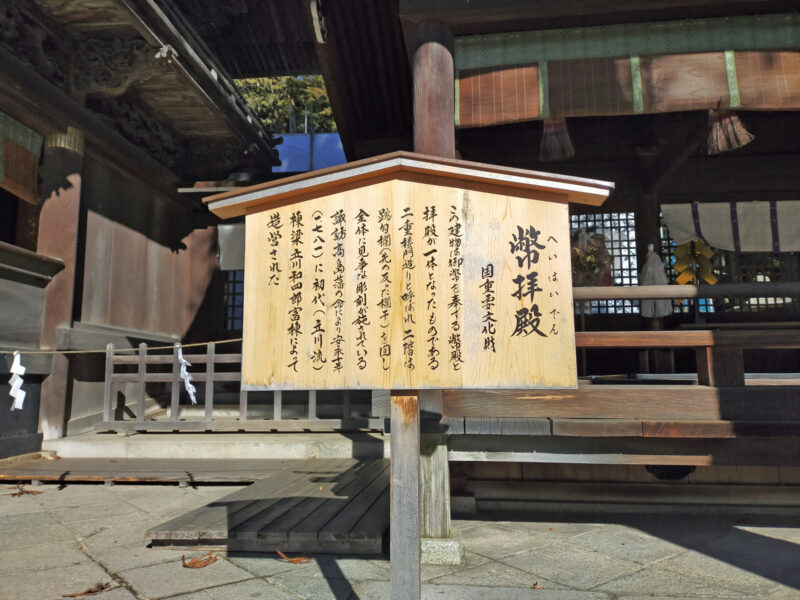 幣拝殿
へいはいでん
国重要文化財
この建物は御幣を奉する幣殿と
拝殿が一体となったものである
二重楼門造りと呼ばれ 二階は
跳勾欄(先の反った欄干)を回し
全体に見事な彫刻が施されている
諏訪高島藩の命により安永十年
(一七八一)に初代(立川流)
棟梁 立川和四郎富棟によって
造営された